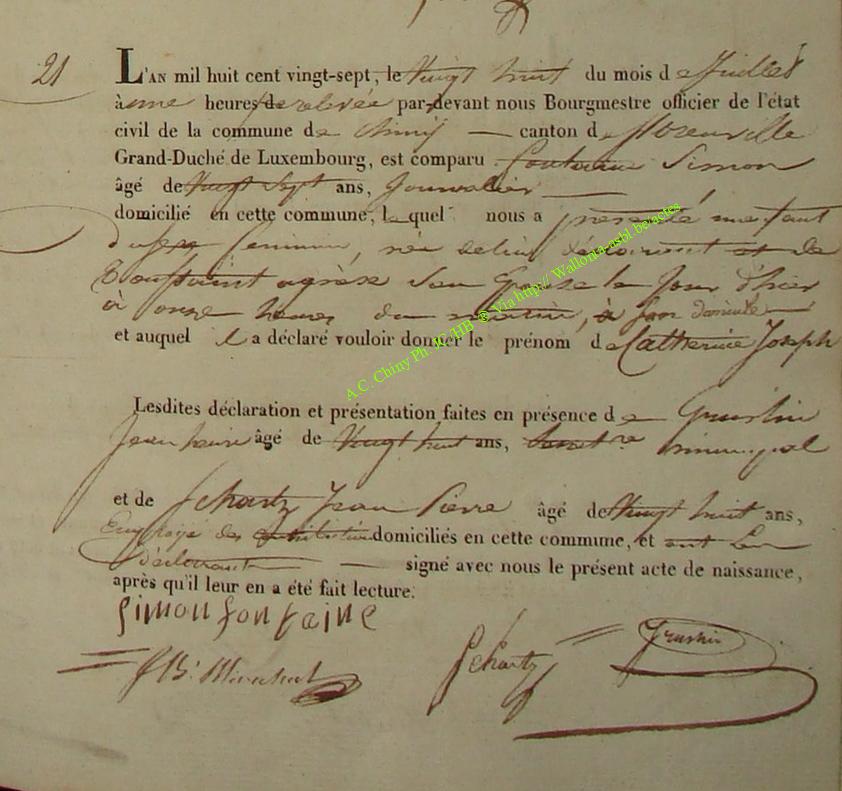 21
L'AN mil huit cent vingt-sept, le Vingt huit du mois de Juillet
à une heures de relevée par-devant nous Bourgmestre officier de l'état
civil de la commune de Chiny — canton de florenville
Grand-Duché de Luxembourg, est comparu fontaine Simon
âgé de Vingt Sept ans, Journalier —
domicilié en cette commune, lequel nous a présenté un enfant
du sexe feminin, née de lui déclarant et de
Toussaint agnèse son Epouse le Jour d'hier
à onze heures du matin, à son domicile —
et auquel il a déclaré vouloir donner le prénom de Catherine Joseph
Lesdites déclaration et présentation faites en présence de
Jean âgé de Vingt huit ans,
et de Schartz Jean Pierre âgé de Vingt huit ans,
Employé des domiciliés en cette commune, et ont Le
Déclarant — signé avec nous le présent acte de naissance,
après qu'il leur en a été fait lecture.
Simon fontaine
Schartz
A.C. Chiny Ph. JC.HB ® Via http:// Wallonia-asbl.be/actes